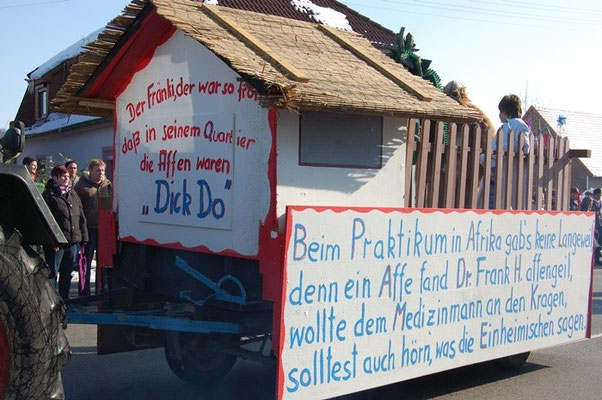 Der Fränki, der war so froh
daß in seinem Quartier
die Affen waren
„Dick Do"
Beim Praktikum in Afrika gab's keine Langewei
denn ein Affe fand Dr. Frank H. affengeil,
wollte dem Medizinmann an den Kragen,
solltest auch hörn, was die Einheimischen sagen.